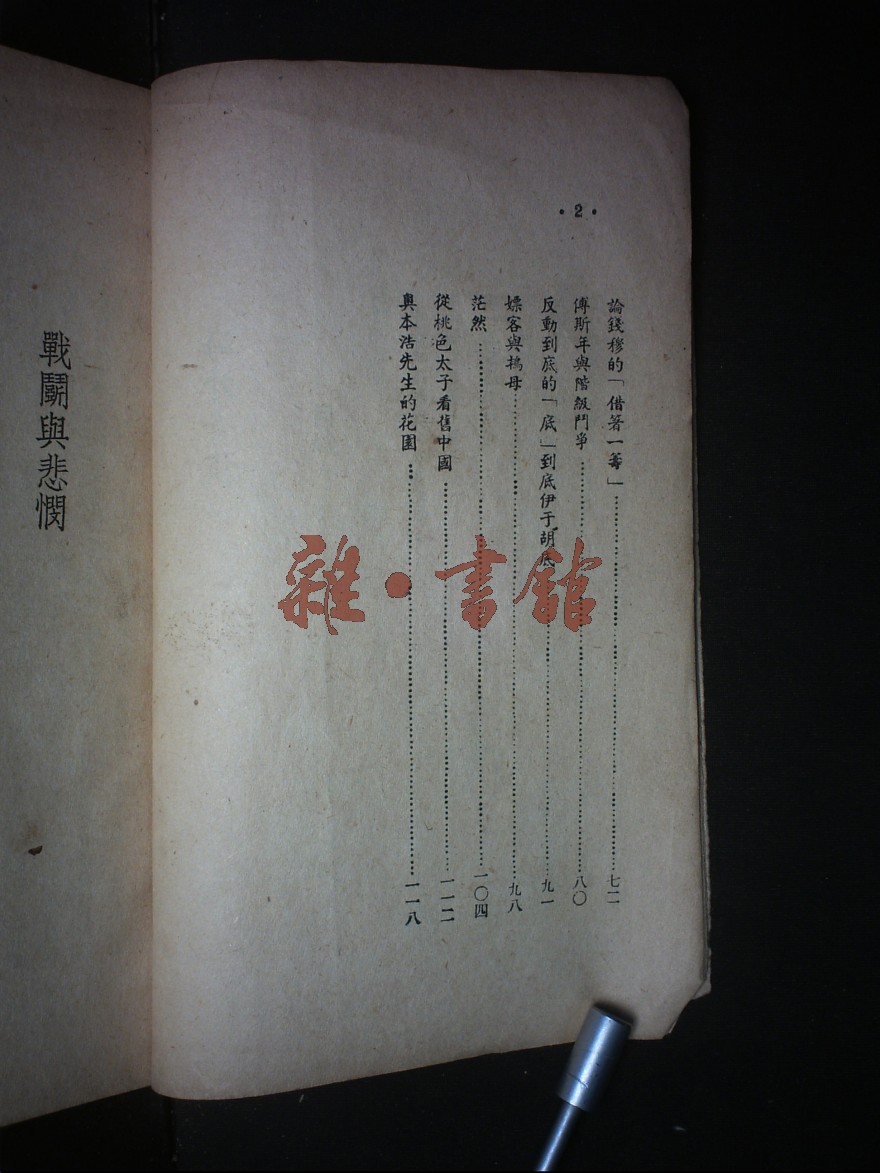 •2•
論錢穆的「借箸一籌」……七二
傅斯年與階級鬥爭……八〇
反動到底的「底」到底伊于胡底……九一
嫖客與鴇母……九八
茫然……一〇四
從桃色太子看舊中國……一一二
奧本浩先生的花園……一一八
戰鬭與悲憫
雜•書館